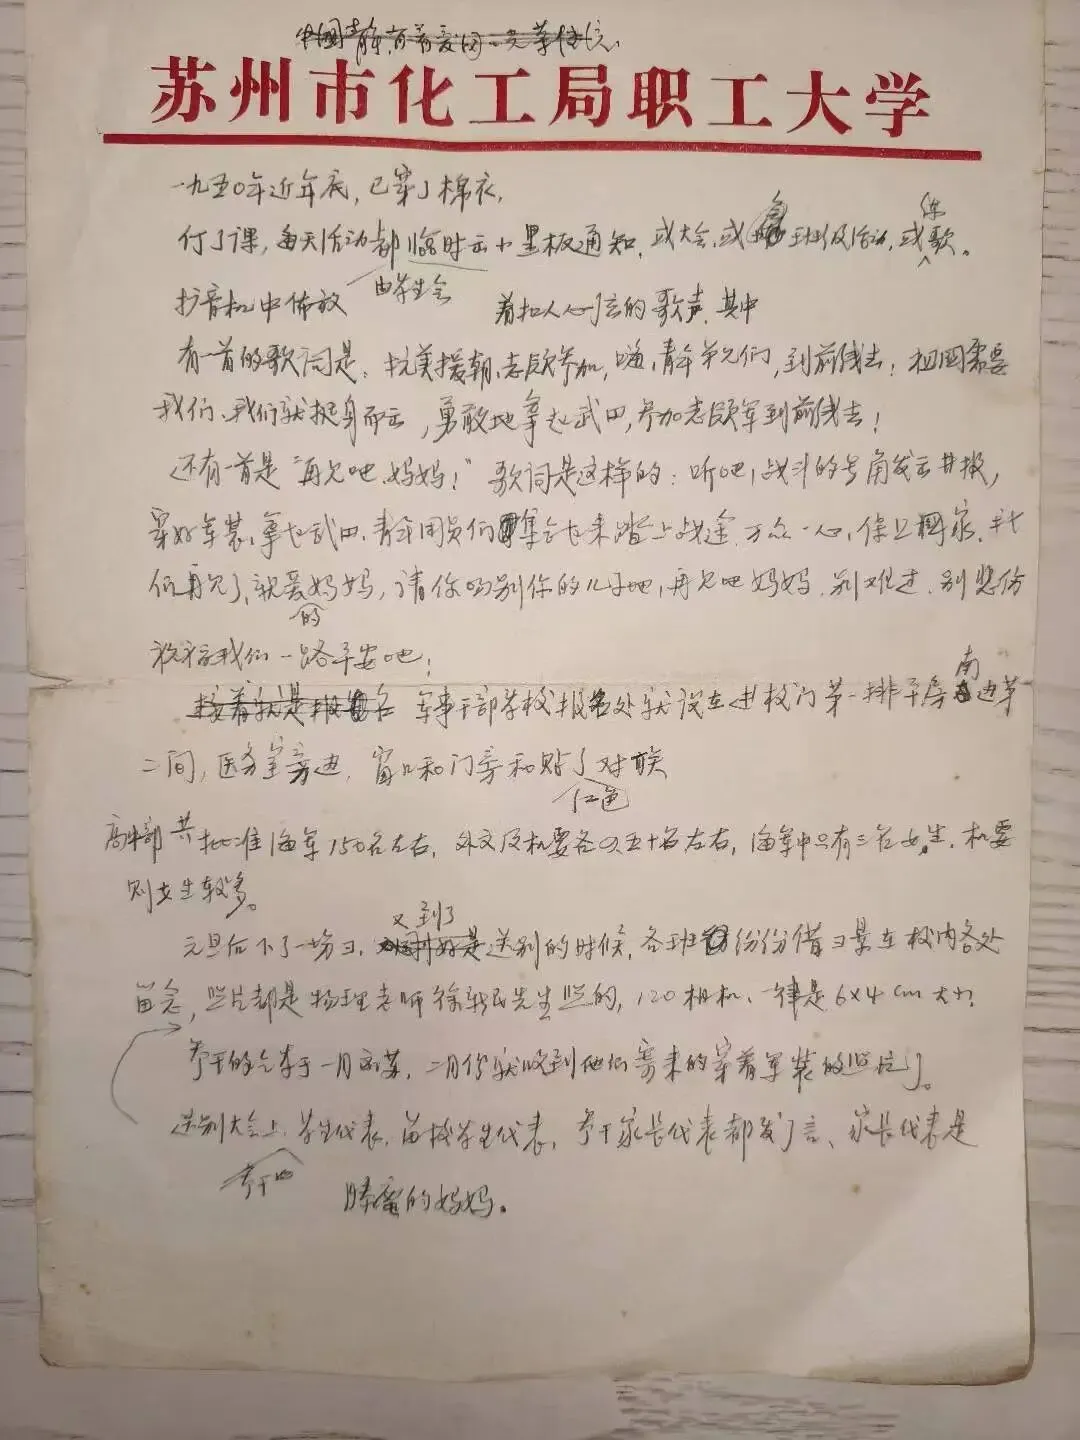 中国青年有着爱国 光荣传统
苏州市化工局职工大学
一九五〇年近年底，已穿了棉衣，
付了课，每天活动都临时出小黑板通知，或大会，或 班级活动，或练歌。
由学生会
扩音机中播放 着扣人心弦的歌声，其中
有一首的歌词是：抗美援朝，志愿参加，嗨，青年弟兄们，到前线去！祖国需要
我们，我们就挺身而出，勇敢地拿起武四，参加志愿军到前线去！
还有一首是"再见吧，妈妈！"歌词是这样的：听吧！战斗的号角发出井报，
穿好军装，拿起武四，青年团员们集合起来踏上战途，万众一心，保卫国家，我
们再见了，亲爱的妈妈，请你吻别你的儿子吧，再见吧妈妈，别难过，别悲伤
祝福我们一路平安吧！
接着就是报名 军事干部学校报名处就设在进校门第一排平房南边第
二间，医务室旁边，窗口和门旁和贴了红色对联
高中部共批准海军150名左右，外文及机要各以五十名左右，海军中只有三名女生，机要
则女生较多。
元旦后下了一场彐，又到了送别的时候，各班份份借彐景在校内各处
留念，照片都是物理老师徐 先生照的，120相机，一律是6×4cm大小。
参干的仝学于一月离苏，二月份就收到他们寄来的穿着军装的照片了。
送别大会上，参干的学生代表，留校学生代表，参干家长代表都发了言，家长代表是
的妈妈。